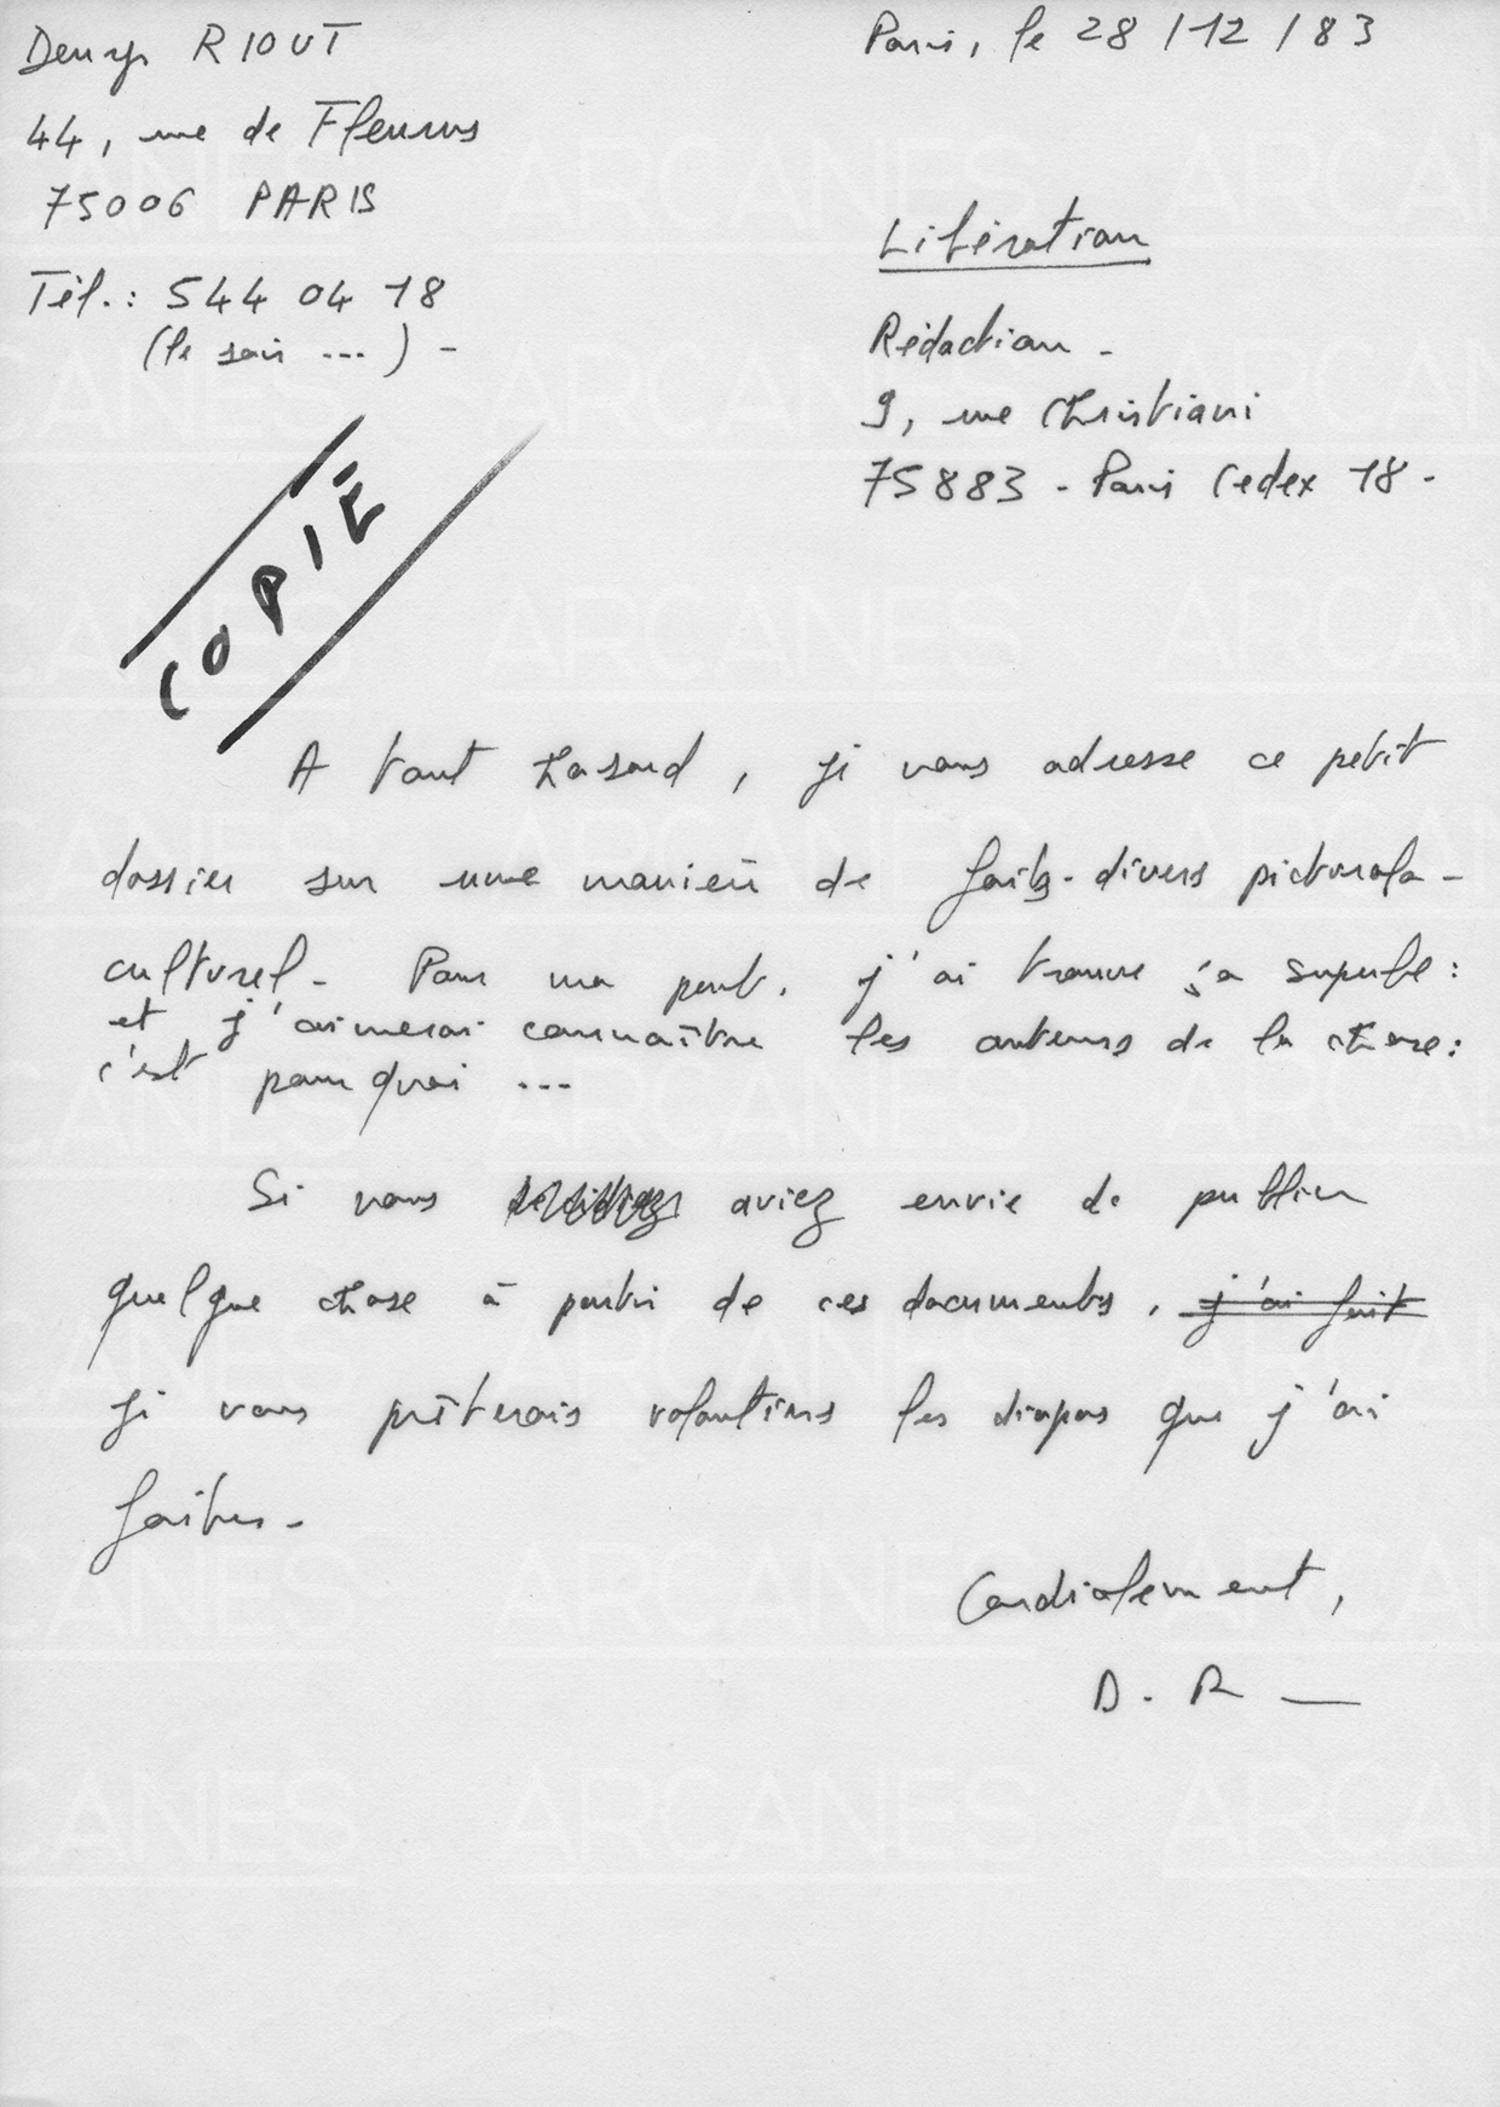 Denys RIOUT
44, rue de Fleurus
75006 PARIS
Tél. : 544 04 18
(le soir ...) -
Paris, le 28 / 12 / 83
Libération
Rédaction -
9, rue Christiani
75883 - Paris Cedex 18 -
COPIE
A tout hasard, je vous adresse ce petit
dossier sur une manière de faits-divers picturalo-
culturel - Pour ma part, j'ai trouvé ça superbe :
et j'aimerai connaître les auteurs de la chose :
c'est pourquoi ...
Si vous aviez envie de publier
quelque chose à partir de ces documents, j'ai fait
je vous prêterais volontiers les diapos que j'ai
faites -
Cordialement,
D. R —
ARCANES